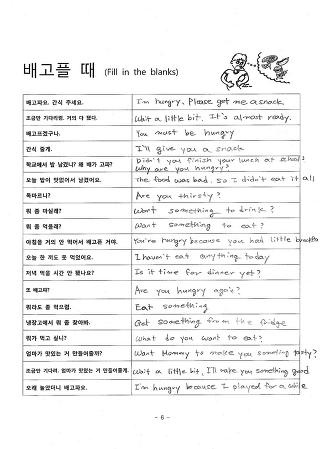 배고플 때 (Fill in the blanks)
배고파요. 간식 주세요. I'm hungry. Please get me a snack
조금만 기다리렴. 거의 다 됐다. Wait a little bit. It's almost ready.
배고프겠구나. You must be hungry
간식 줄게. I'll give you a snack
학교에서 밥 남겼니? 왜 배가 고파? Didn't you finish your lunch at school? Why are you hungry?
오늘 밥이 맛없어서 남겼어요. The food was bad. so I didn't eat it all
목마르니? Are you thirsty?
뭐 좀 마실래? Want something to drink?
뭐 좀 먹을래? Want something to eat?
아침을 거의 안 먹어서 배고픈 거야. You're hungry because you had little breakfast
오늘 한 끼도 못 먹었어요. I haven't eat anything today
저녁 먹을 시간 안 됐나요? Is it time for dinner yet?
또 배고파? Are you hungry again?
뭐라도 좀 먹으렴. Eat something
냉장고에서 뭐 좀 찾아봐. Get something from the fridge
뭐가 먹고 싶니? What do you want to eat?
엄마가 맛있는 거 만들어줄까? Want Mommy to make you something tasty?
조금만 기다려. 엄마가 맛있는 거 만들어줄게. Wait a little bit. I'll make you something good
오래 놀았더니 배고파요. I'm hungry because I played for a while
- 6 -